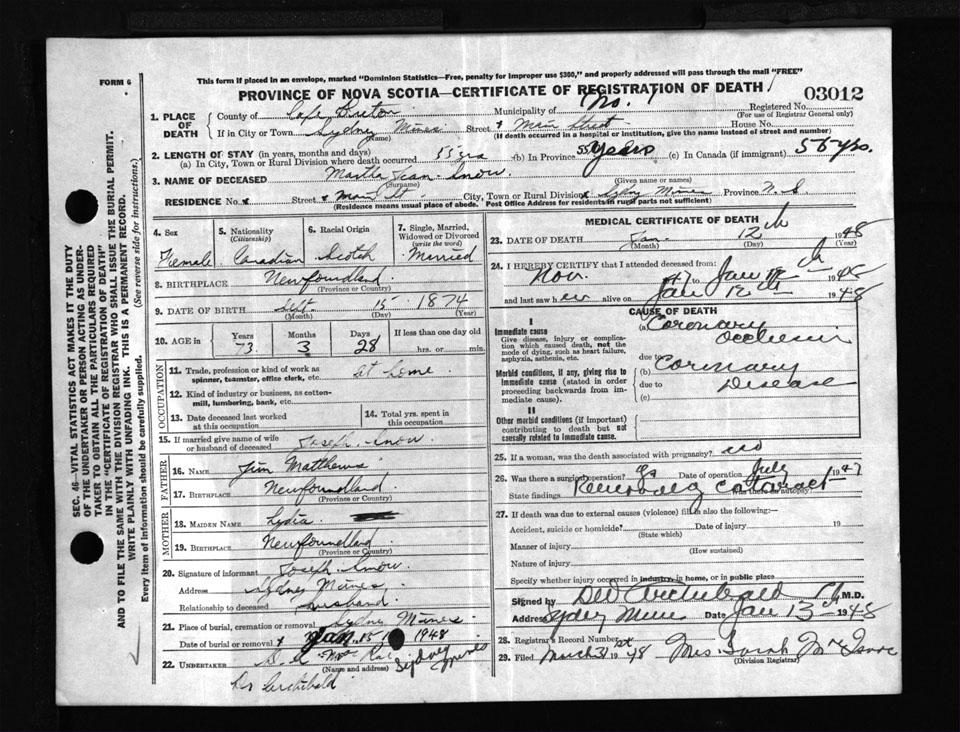 FORM 6
This form if placed in an envelope, marked "Dominion Statistics—Free, penalty for improper use $300," and properly addressed will pass through the mail "FREE"
PROVINCE OF NOVA SCOTIA—CERTIFICATE OF REGISTRATION OF DEATH
03012
1. PLACE OF DEATH
County of Cape Breton Municipality of (No. ) Registered No.
(For use of Registrar General only)
If in City or Town Sydney Mines Street Main Street House No.
(Name) (If death occurred in a hospital or institution, give the name instead of street and number)
2. LENGTH OF STAY (in years, months and days)
(a) In City, Town or Rural Division where death occurred 55 yrs (b) In Province 55 years (c) In Canada (if immigrant) 55 yrs.
3. NAME OF DECEASED Martha Jean Snow.
(Surname) (Given name or names)
RESIDENCE No. Street Main St City, Town or Rural Division Sydney Mines Province N. S
(Residence means usual place of abode. Post Office Address for residents in rural parts not sufficient)
4. Sex Female
5. Nationality (Citizenship) Canadian
6. Racial Origin Scotch
7. Single, Married, Widowed or Divorced (write the word) Married
8. BIRTHPLACE Newfoundland
(Province or Country)
9. DATE OF BIRTH Sept. 15 1874
(Month) (Day) (Year)
10. AGE in Years 73 Months 3 Days 28 If less than one day old hrs. or min.
OCCUPATION
11. Trade, profession or kind of work as spinner, teamster, office clerk, etc. at home
12. Kind of industry or business, as cotton-mill, lumbering, bank, etc.
13. Date deceased last worked at this occupation
14. Total yrs. spent in this occupation
15. If married give name of wife or husband of deceased Joseph Snow
FATHER
16. NAME Jim Matthews
17. BIRTHPLACE Newfoundland
(Province or Country)
MOTHER
18. MAIDEN NAME Lydia
19. BIRTHPLACE Newfoundland
(Province or Country)
20. Signature of informant Joseph Snow.
Address Sydney Mines
Relationship to deceased husband
21. Place of burial, cremation or removal Sydney Mines
Date of burial or removal Jan. 15 1948
22. UNDERTAKER Sydney Mines
(Name and address)
Dr Archibald
MEDICAL CERTIFICATE OF DEATH
23. DATE OF DEATH Jan. 12th 1948
(Month) (Day) (Year)
24. I HEREBY CERTIFY that I attended deceased from:
Nov. 1947 to Jan 12th 1948
and last saw her alive on Jan 12th 1948
CAUSE OF DEATH
I
Immediate cause
Give disease, injury or complication which caused death, not the mode of dying, such as heart failure, asphyxia, asthenia, etc.
(a) Coronary Occlusion
due to
Morbid conditions, if any, giving rise to immediate cause (stated in order proceeding backwards from immediate cause).
(b) Coronary Disease
due to
(c)
II
Other morbid conditions (if important) contributing to death but not causally related to immediate cause.
25. If a woman, was the death associated with pregnancy? no
26. Was there a surgical operation? Yes Date of operation July 1947
State findings Removing cataract Was there an autopsy?
27. If death was due to external causes (violence) fill in also the following:
Accident, suicide or homicide? Date of injury 19
(State which)
Manner of injury
(How sustained)
Nature of injury
Specify whether injury occurred in industry, in home, or in public place
Signed by Archibald M.D.
Address Sydney Mines Date Jan 13th 1948
28. Registrar's Record Number
29. Filed March 31st 1948 Mrs Sarah McIsaac
(Division Registrar)
SEC. 46—VITAL STATISTICS ACT MAKES IT THE DUTY
OF THE UNDERTAKER OR PERSON ACTING AS UNDERTAKER TO OBTAIN ALL THE PARTICULARS REQUIRED
IN "CERTIFICATE OF REGISTRATION OF DEATH"
AND TO FILE THE SAME WITH THE DIVISION REGISTRAR WHO SHALL ISSUE THE BURIAL PERMIT.
WRITE PLAINLY WITH UNFADING INK. THIS IS A PERMANENT RECORD.
Every item of information should be carefully supplied. (See reverse side for instructions.)